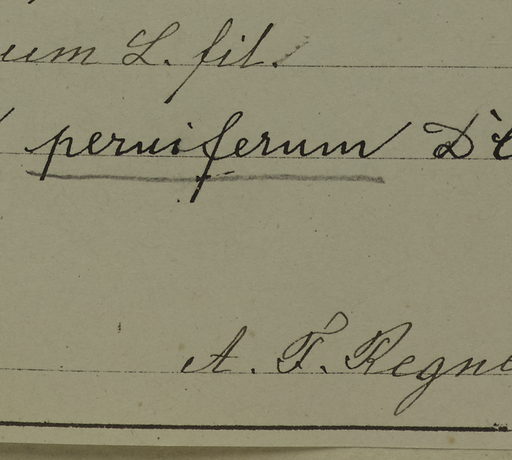 um L. fil.
peruiferum D'C
A. F. Regne